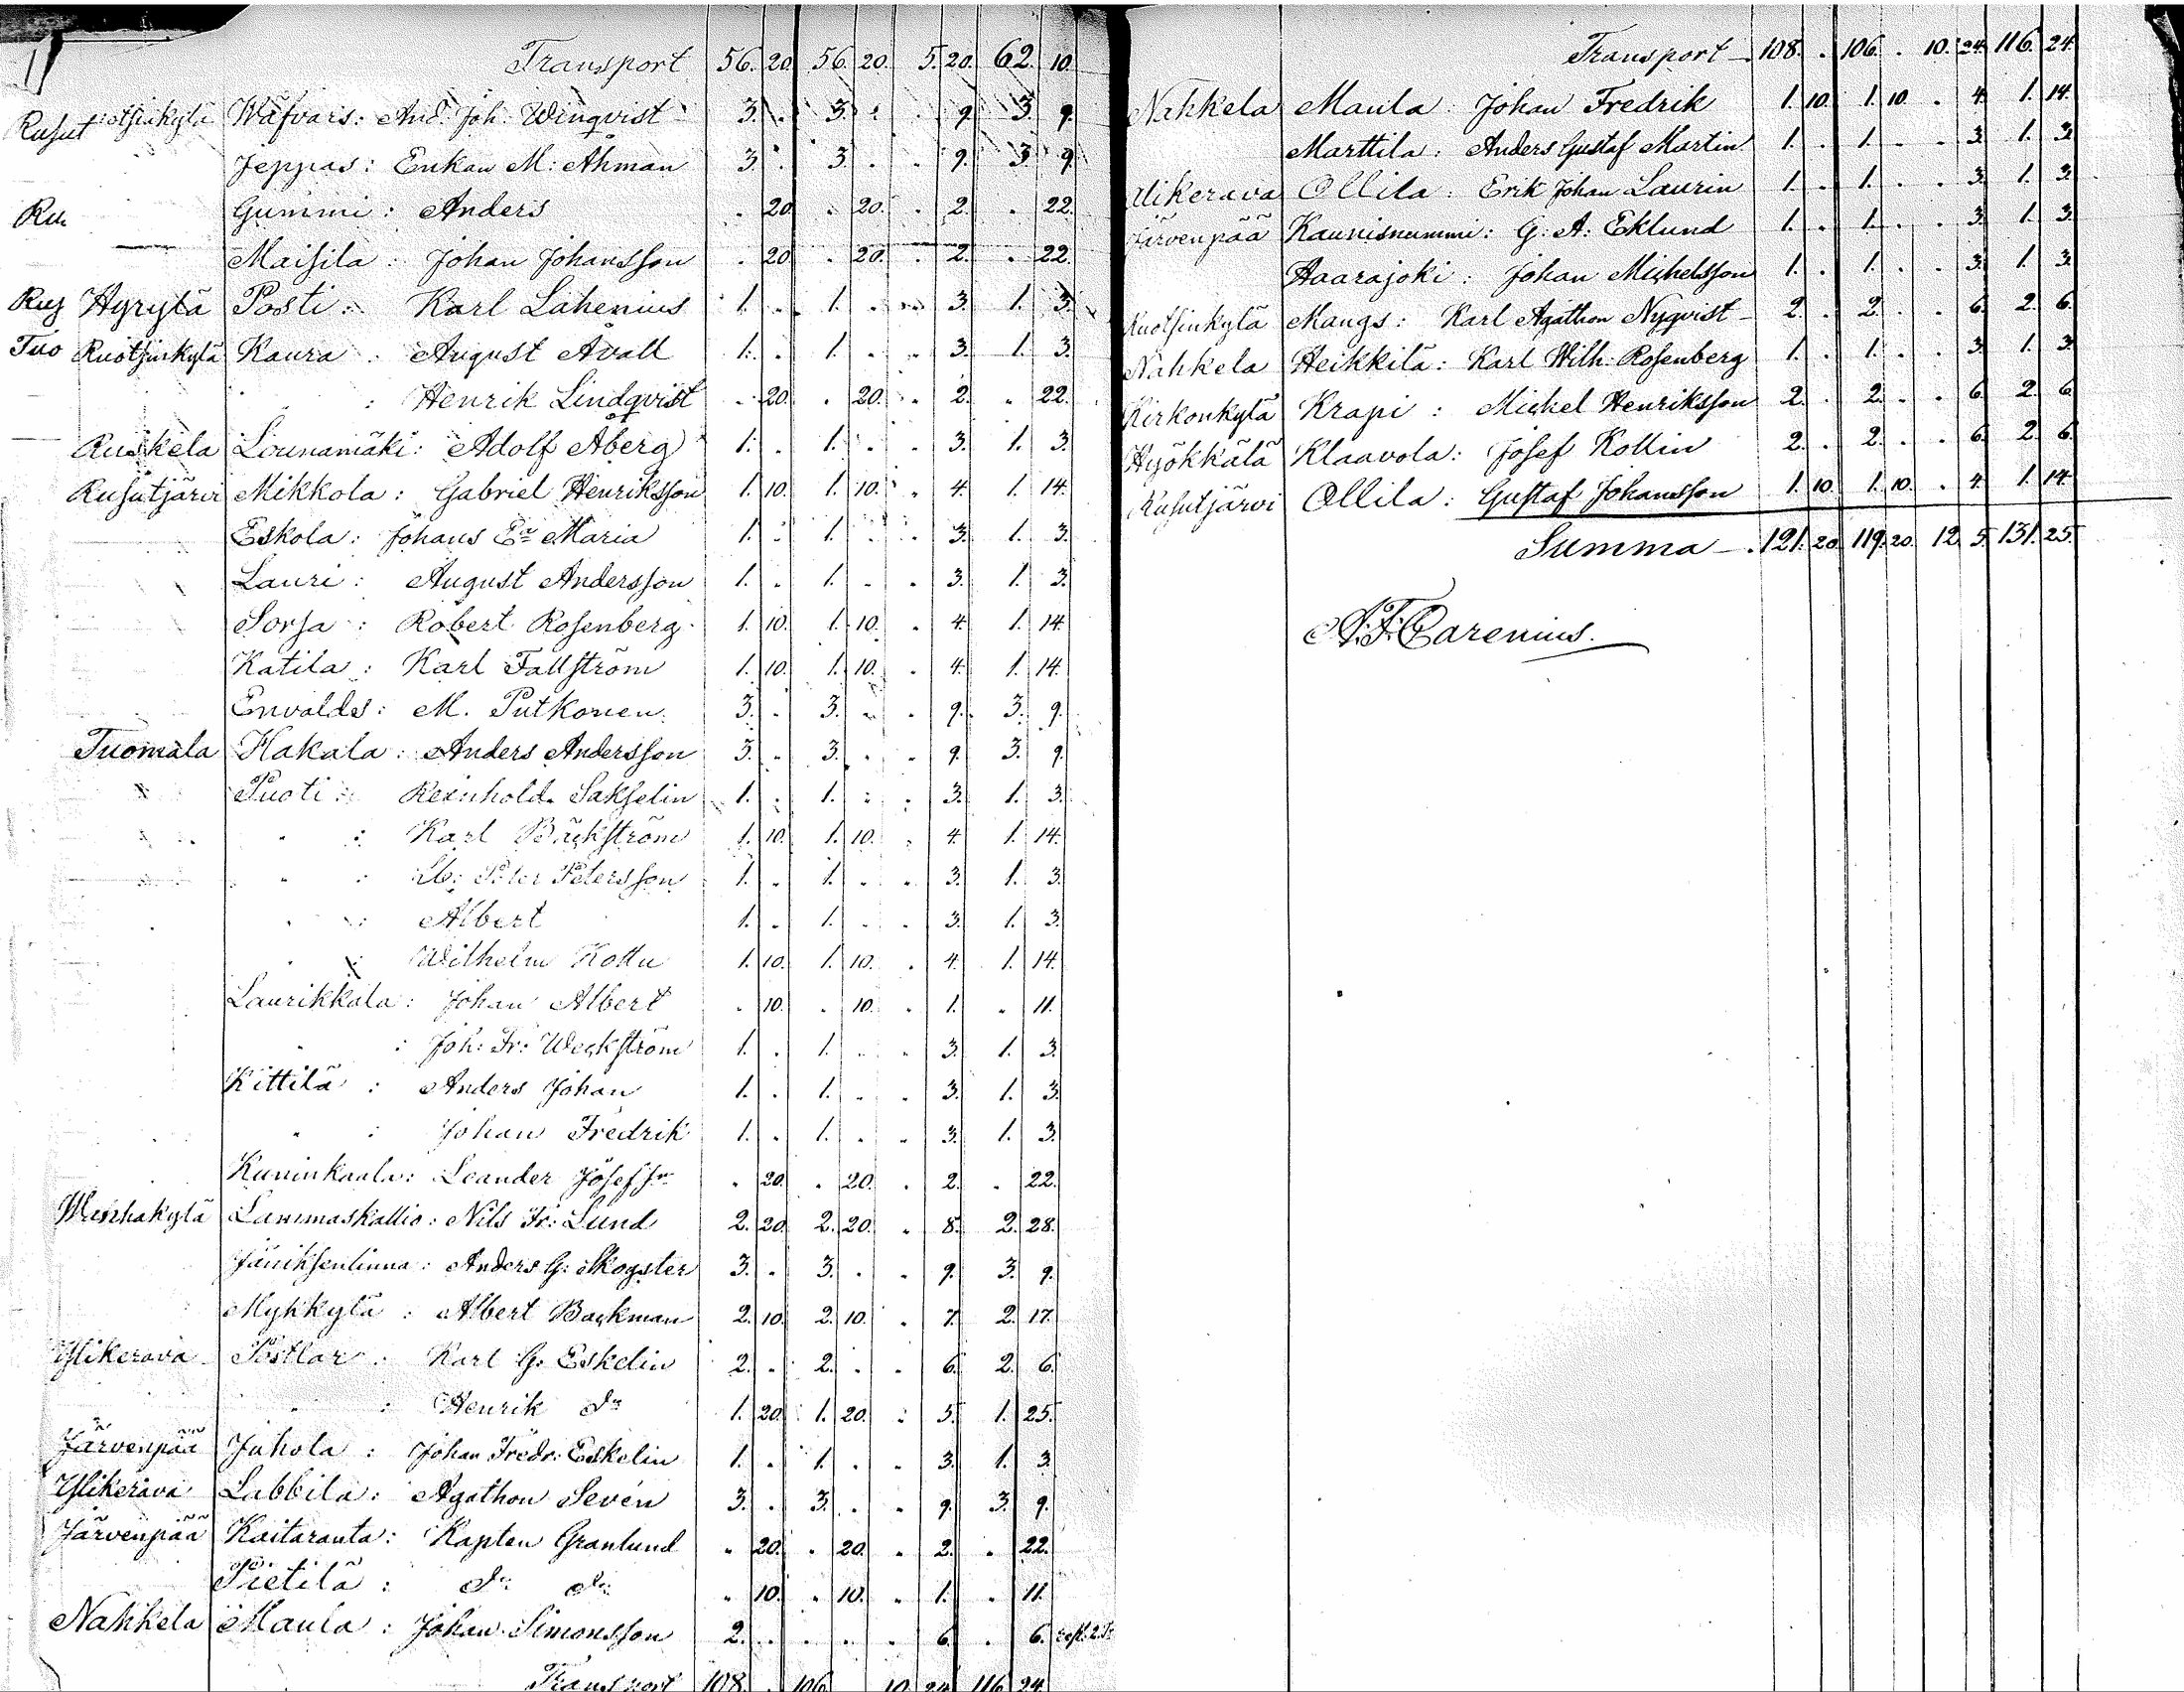 Transport 56. 20. 56. 20. 5. 20. 62. 10.
Rusut otsinkylä Wäfvars: And. Joh. Winqvist 3. . 3. . . 9. 3. 9.
Jeppas: Enkan M: Åhman 3. . 3. . . 9. 3. 9.
Ru Gummi: Anders . 20. . 20. . 2. . 22.
Maisila: Johan Johansson . 20. . 20. . 2. . 22.
Rus Hyrylä Posti: Karl Lahenius 1. . 1. . . 3. 1. 3.
Tuo Ruotsinkylä Kaura: August Avall 1. . 1. . . 3. 1. 3.
: Henrik Lindqvist . 20. . 20. . 2. . 22.
Ruskela Lounamäki: Adolf Åberg 1. . 1. . . 3. 1. 3.
Rusutjärvi Mikkola: Gabriel Henriksson 1. 10. 1. 10. . 4. 1. 14.
Eskola: Johans Ea Maria 1. . 1. . . 3. 1. 3.
Lauri: August Andersson 1. . 1. . . 3. 1. 3.
Sorsa: Robert Rosenberg 1. 10. 1. 10. . 4. 1. 14.
Katila: Karl Fallström 1. 10. 1. 10. . 4. 1. 14.
Envalds: M. Putkonen 3. . 3. . . 9. 3. 9.
Tuomala Hakala: Anders Andersson 3. . 3. . . 9. 3. 9.
" Puoti: Reinhold Sakselin 1. . 1. . . 3. 1. 3.
" " : Karl Bäckström 1. 10. 1. 10. . 4. 1. 14.
" " : Peter Petersson 1. . 1. . . 3. 1. 3.
" : Albert 1. . 1. . . 3. 1. 3.
" : Wilhelm Kollu 1. 10. 1. 10. . 4. 1. 14.
Laurikkala: Johan Albert . 10. . 10. . 1. . 11.
" : Joh: Fr: Weckström 1. . 1. . . 3. 1. 3.
Kittilä: Anders Johan 1. . 1. . . 3. 1. 3.
" : Johan Fredrik 1. . 1. . . 3. 1. 3.
Kuninkaala: Leander Josefsn . 20. . 20. . 2. . 22.
Wanhakylä Lammaskallio: Nils Fr: Lund 2. 20. 2. 20. . 8. 2. 28.
Jäniksenlinna: Anders G: Skogster 3. . 3. . . 9. 3. 9.
Mykkylä: Albert Backman 2. 10. 2. 10. . 7. 2. 17.
Ylikerava Postlar: Karl G: Eskelin 2. . 2. . . 6. 2. 6.
" : Henrik do 1. 20. 1. 20. . 5. 1. 25.
Järvenpää Juhola: Johan Fredr: Eskelin 1. . 1. . . 3. 1. 3.
Ylikerava Labbila: Agathon Sevén 3. . 3. . . 9. 3. 9.
Järvenpää Kaitaranta: Kapten Granlund . 20. . 20. . 2. . 22.
Pietilä: do do . 10. . 10. . 1. . 11.
Nahkela Maula: Johan Simonsson 2. . . . . 6. . 6.
Transport 108. . 106. 10. 24. 116. 24.
Transport 108. . 106. . 10. 24. 116. 24.
Nahkela Maula: Johan Fredrik 1. 10. 1. 10. . 4. 1. 14.
Marttila: Anders Gustaf Martin 1. . 1. . . 3. 1. 3.
Ylikerava Ollila: Erik Johan Laurin 1. . 1. . . 3. 1. 3.
Järvenpää Kaunisnummi: G: A: Eklund 1. . 1. . . 3. 1. 3.
Haarajoki: Johan Michelsson 1. . 1. . . 3. 1. 3.
Ruotsinkylä Mangs: Karl Agathon Nyqvist 2. . 2. . . 6. 2. 6.
Nahkela Heikkilä: Karl Wilh: Rosenberg 1. . 1. . . 3. 1. 3.
Kirkonkylä Krapi: Michel Henriksson 2. . 2. . . 6. 2. 6.
Hyökkälä Klaavola: Josef Kollin 2. . 2. . . 6. 2. 6.
Rusutjärvi Ollila: Gustaf Johansson 1. 10. 1. 10. . 4. 1. 14.
Summa 121. 20. 119. 20. 12. 5. 131. 25.
A. F. Carenius.